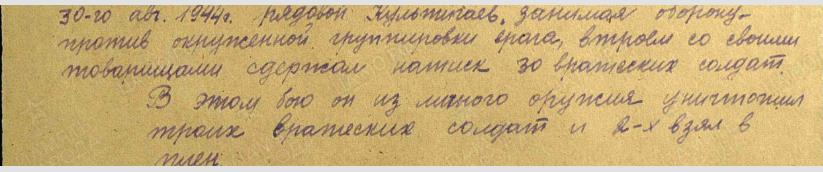 30-го авг. 1944г. рядовой Культигаев, занимая оборону
против окруженной группировки врага, втроем со своими
товарищами сдержал натиск 30 вражеских солдат.
В этом бою он из личного оружия уничтожил
троих вражеских солдат и 2-х взял в
плен